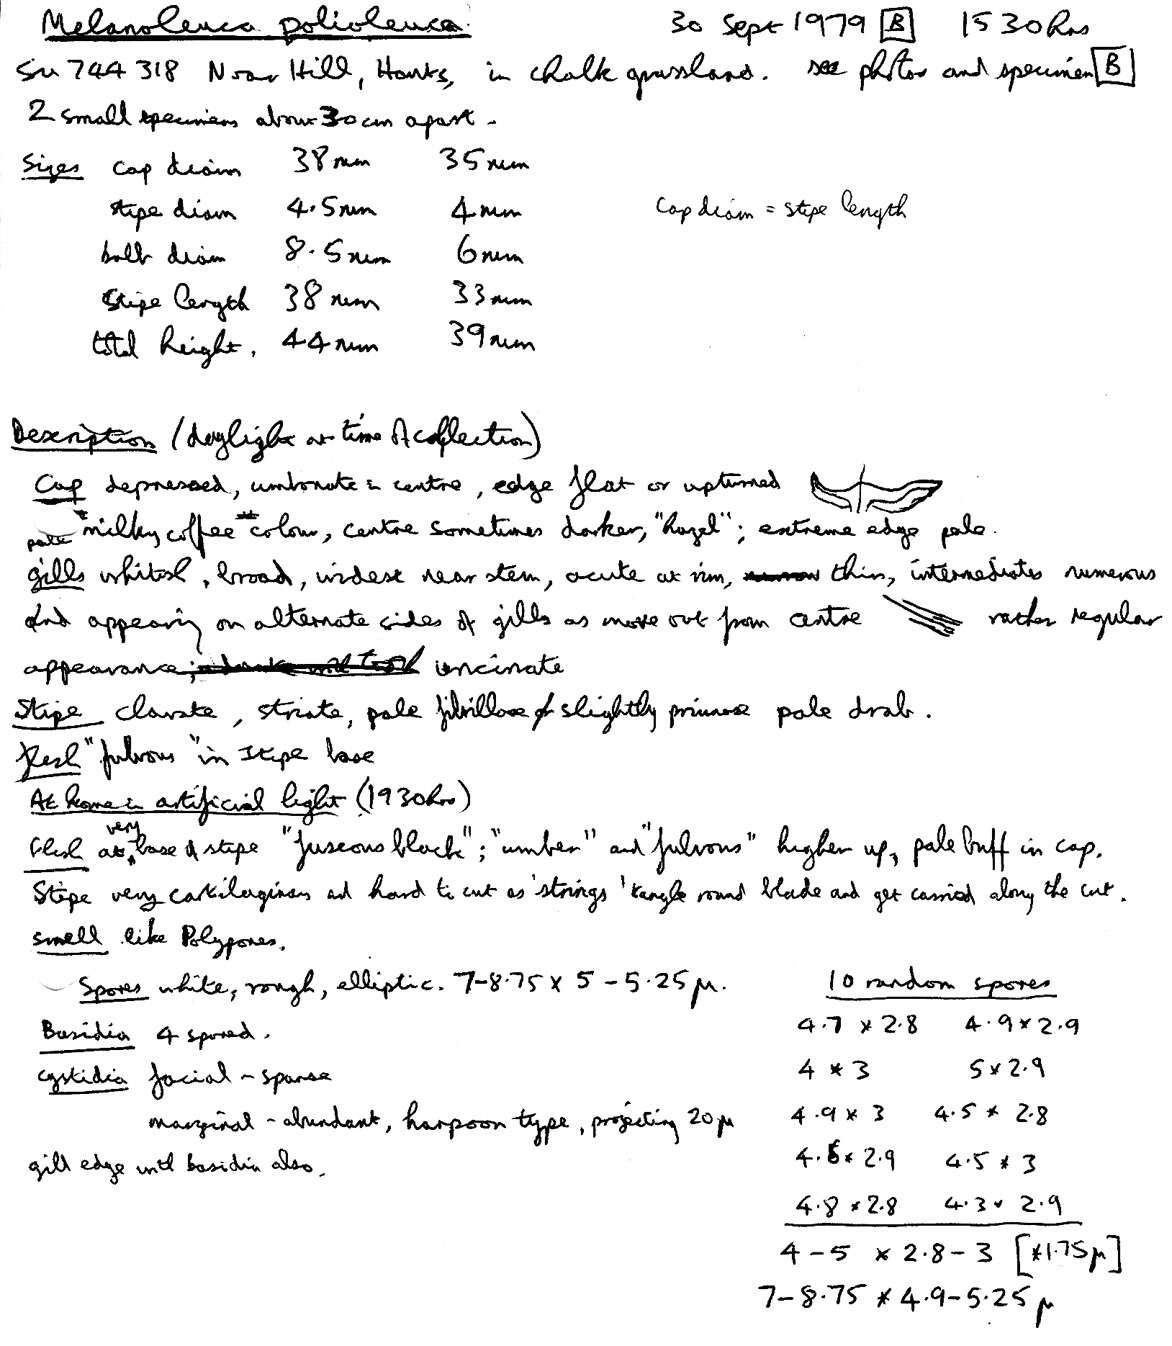 Melanoleuca polioleuca. 30 Sept 1979 B 1530 hrs
SU 744 318 Noar Hill, Hants, in chalk grassland. see photos and specimen B
2 small specimens about 30cm apart -
Sizes cap diam 38mm 35mm
stipe diam 4.5mm 4mm cap diam = stipe length
bulb diam 8.5mm 6mm
stipe length 38mm 33mm
total height. 44mm 39mm
Description (daylight at time of collection)
Cap depressed, umbonate in centre, edge flat or upturned
pale "milky coffee" colour, centre sometimes darker, "hazel"; extreme edge pale.
gills whitish, broad, widest near stem, acute at rim, thin, intermediates numerous
and appearing on alternate sides of gills as move out from centre rather regular
appearance; uncinate
Stipe clavate, striate, pale fibrillose & slightly pruinose pale drab.
flesh "fulvous" in stipe base
At home in artificial light (1930hrs)
Flesh at very base of stipe "fuscous black"; "umber" and "fulvous" higher up, pale buff in cap.
Stipe very cartilaginous and hard to cut as 'strings' tangle round blade and get carried along the cut.
smell like Polypores.
Spores white, rough, elliptic. 7-8.75 x 5-5.25 µ. 10 random spores
Basidia 4 spored. 4.7 x 2.8 4.9 x 2.9
cystidia facial - sparse 4 x 3 5 x 2.9
marginal - abundant, harpoon type, projecting 20 µ 4.9 x 3 4.5 x 2.8
gill edge with basidia also. 4.8 x 2.9 4.5 x 3
4.8 x 2.8 4.3 x 2.9
4-5 x 2.8-3 [x1.75µ]
7-8.75 x 4.9-5.25 µ